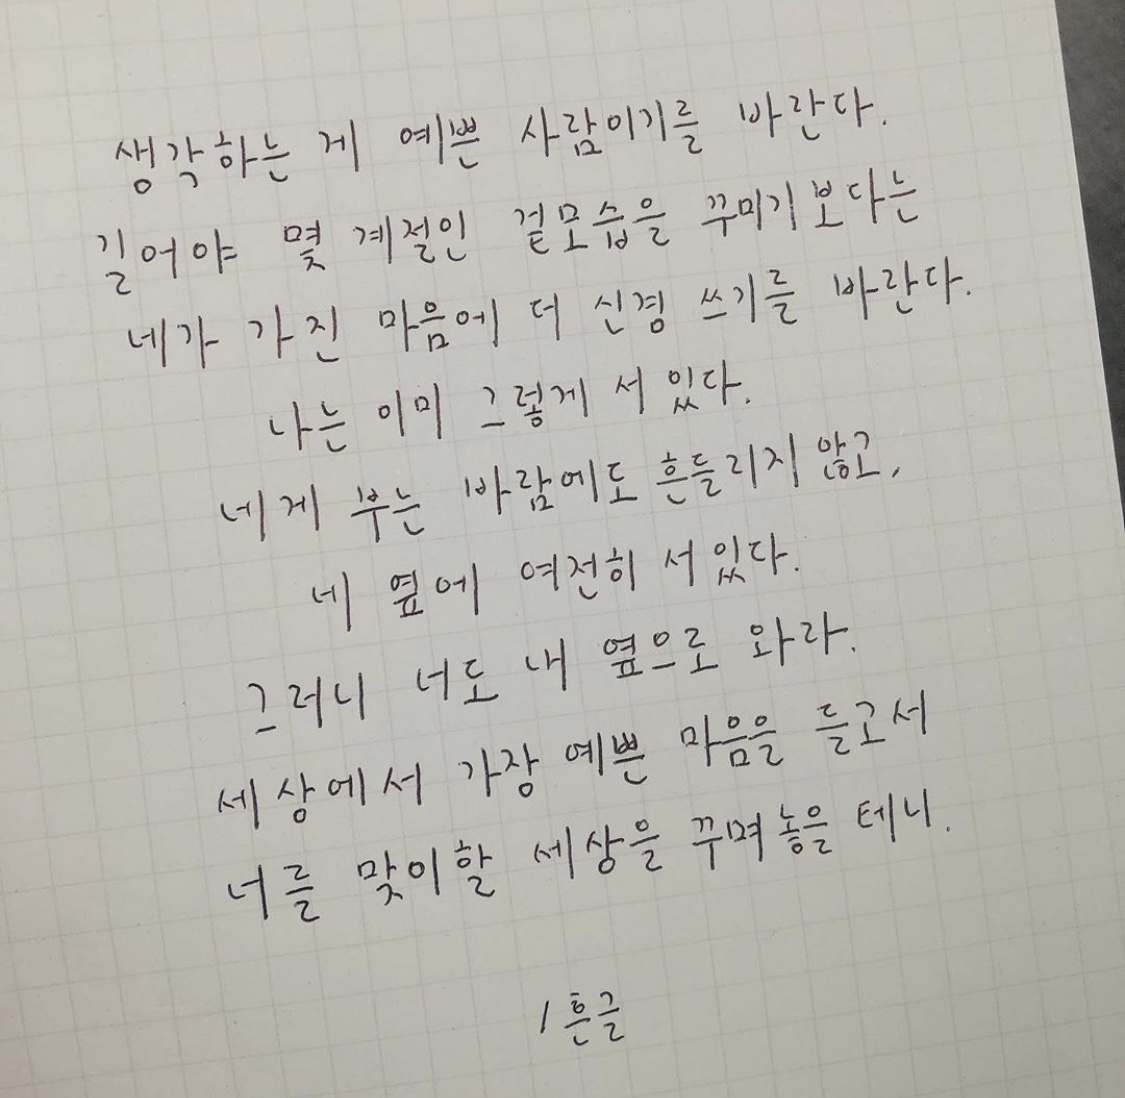 생각하는 게 예쁜 사람이기를 바란다.
길어야 몇 계절인 겉모습을 꾸미기 보다는
네가 가진 마음에 더 신경 쓰기를 바란다.
나는 이미 그렇게 서 있다.
네게 부는 바람에도 흔들리지 않고,
네 옆에 여전히 서 있다.
그러니 너도 내 옆으로 와라.
세상에서 가장 예쁜 마음을 들고서
너를 맞이할 세상을 꾸며놓을 테니.
/ 흔글